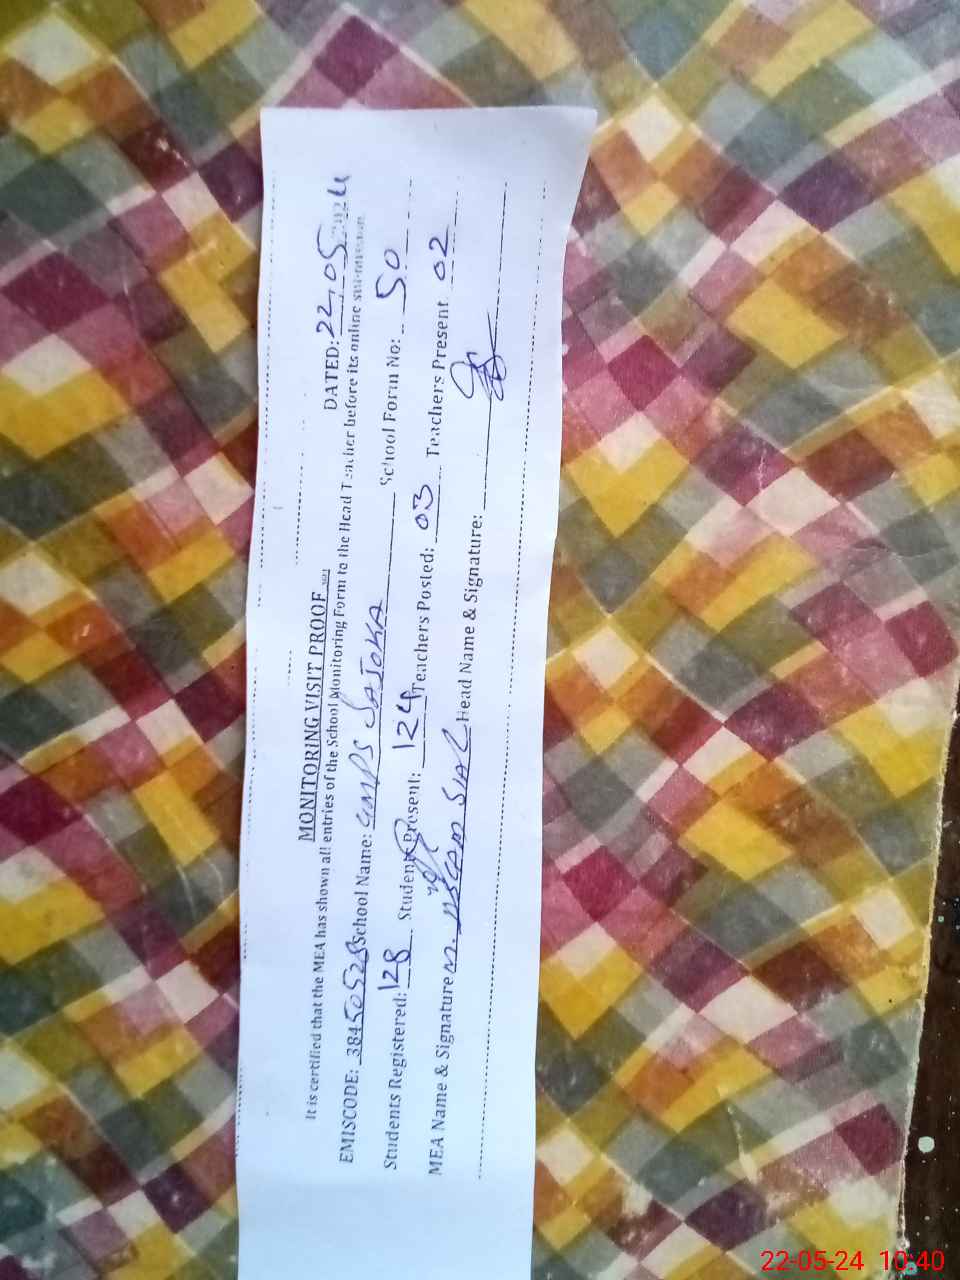 MONITORING VISIT PROOF
DATED: 22.05.2024
It is certified that the MEA has shown all entries of the School Monitoring Form to the Head Teacher before its online submission.
EMISCODE: 38450528 School Name: GMPS SAJOKA School Form No: 50
Students Registered: 128 Students Present: 124 Teachers Posted: 03 Teachers Present 02
MEA Name & Signature M. ASLAM SIAL Head Name & Signature:
22-05-24 10:40